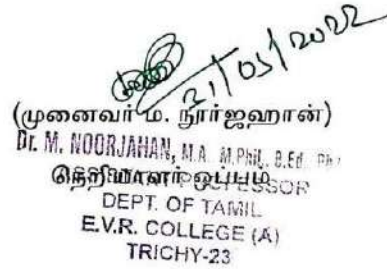 31/05/2022
(முனைவர் ம. நூர்ஜஹான்)
Dr. M. NOORJAHAN, M.A. M.Phil., B.Ed. Ph
நெறியாளர் ஒப்பம்
DEPT. OF TAMIL
E.V.R. COLLEGE (A)
TRICHY-23